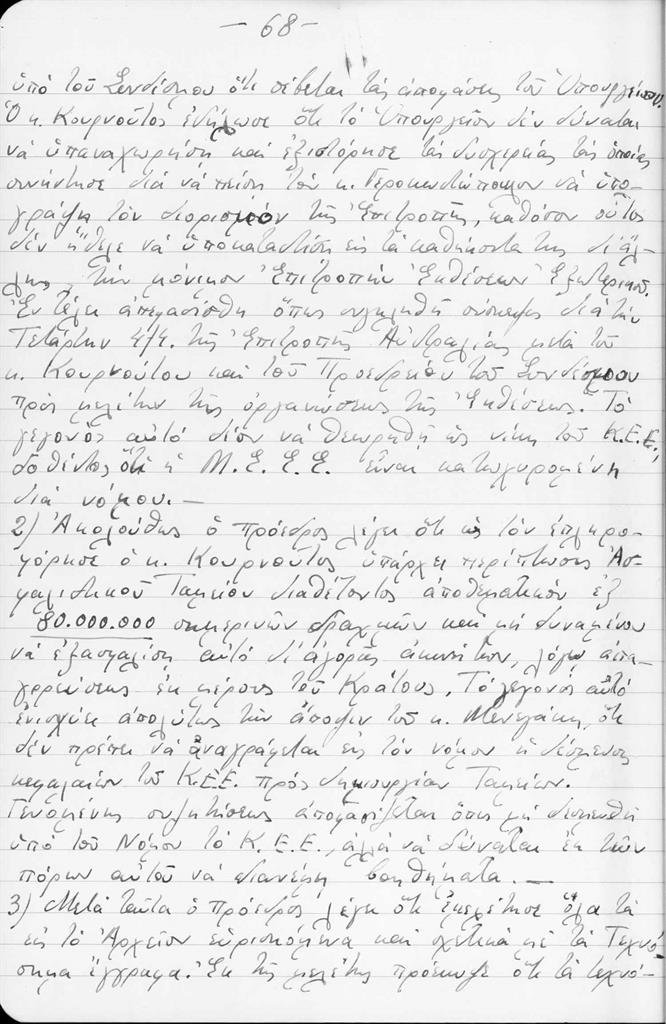 - 68 -
ὑπό τοῦ Συνδέσμου ὅτι σέβεται τάς ἀποφάσεις τοῦ Ὑπουργείου.
Ὁ κ. Κουρνοῦτος ἐδήλωσε ὅτι τό Ὑπουργεῖον δέν δύναται
νά ὑπαναχωρήση καί ἐξιστόρησε τάς δυσχερείας τάς ὁποίας
συνήντησε διά νά πείση τόν κ. Γεροκωστόπουλον νά ὑπο-
γράψη τόν διορισμόν τῆς Ἐπιτροπῆς, καθόσον οὗτος
δέν ἤθελε νά ὑποκαταστήση εἰς τά καθήκοντα της δι' ἄλ-
λης, τήν μόνιμον Ἐπιτροπήν Ἐκθέσεων Ἐξωτερικοῦ.
Ἐν τέλει ἀπεφασίσθη ὅπως συγκληθῆ σύσκεψις διά τήν
Τετάρτην 4/4. τῆς Ἐπιτροπῆς Αὐστραλίας μετά τοῦ
κ. Κουρνούτου καί τοῦ Προεδρείου τοῦ Συνδέσμου
πρός μελέτην τῆς ὀργανώσεως τῆς Ἐκθέσεως. Τό
γεγονός αὐτό δέον νά θεωρηθῆ ὡς νίκη τοῦ Κ.Ε.Ε.,
δοθέντος ὅτι ἡ Μ.Ε.Ε.Ε. εἶναι κατωχυρομένη
διά νόμου. —
2) Ἀκολούθως ὁ πρόεδρος λέγει ὅτι ὡς τόν ἐπληρο-
φόρησε ὁ κ. Κουρνοῦτος ὑπάρχει περίπτωσις Ἀσ-
φαλιστικοῦ Ταμείου διαθέτοντος ἀποθεματικόν ἐξ
80.000.000 σημερινῶν δραχμῶν καί μή δυναμένου
νά ἐξασφαλίση αὐτό δι' ἀγορᾶς ἀκινήτων, λόγω ἀπα-
γορεύσεως ἐκ μέρους τοῦ Κράτους. Τό γεγονός αὐτό
ἐνισχύει ἀπολύτως τήν ἄποψιν τοῦ κ. ὅτι
δέν πρέπει νά ἀναγράφεται εἰς τόν νόμον ἡ δέσμευσις
κεφαλαίων τοῦ Κ.Ε.Ε. πρός δημιουργίαν Ταμείων.
Γενομένης συζητήσεως ἀποφασίζεται ὅπως μή δεσμευθῆ
ὑπό τοῦ Νόμου τό Κ.Ε.Ε., ἀλλά νά δύναται ἐκ τῶν
πόρων αὐτοῦ νά διανέμη βοηθήματα. —
3) Μετά ταῦτα ὁ πρόεδρος λέγει ὅτι ἐμελέτησε ὅλα τά
εἰς τό Ἀρχεῖον εὑρισκόμενα καί σχετικά μέ τά Τεχνό-
σημα ἔγγραφα. Ἐκ τῆς μελέτης προέκυψε ὅτι τά τεχνό-